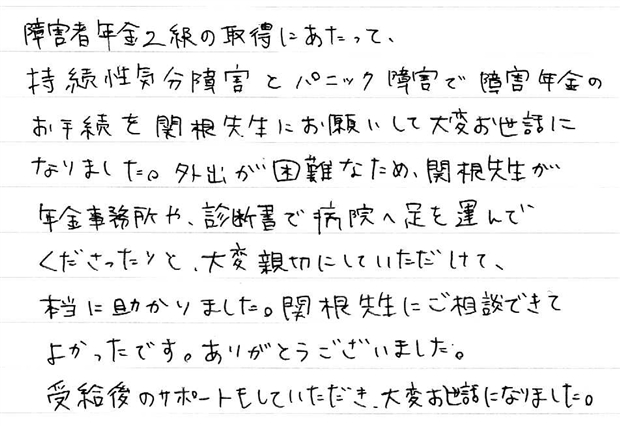 障害者年金2級の取得にあたって、
持続性気分障害とパニック障害で障害年金の
お手続を関根先生にお願いして大変お世話に
なりました。外出が困難なため、関根先生が
年金事務所や、診断書で病院へ足を運んで
くださったりと、大変親切にしていただけて、
本当に助かりました。関根先生にご相談できて
よかったです。ありがとうございました。
受給後のサポートもしていただき、大変お世話になりました。